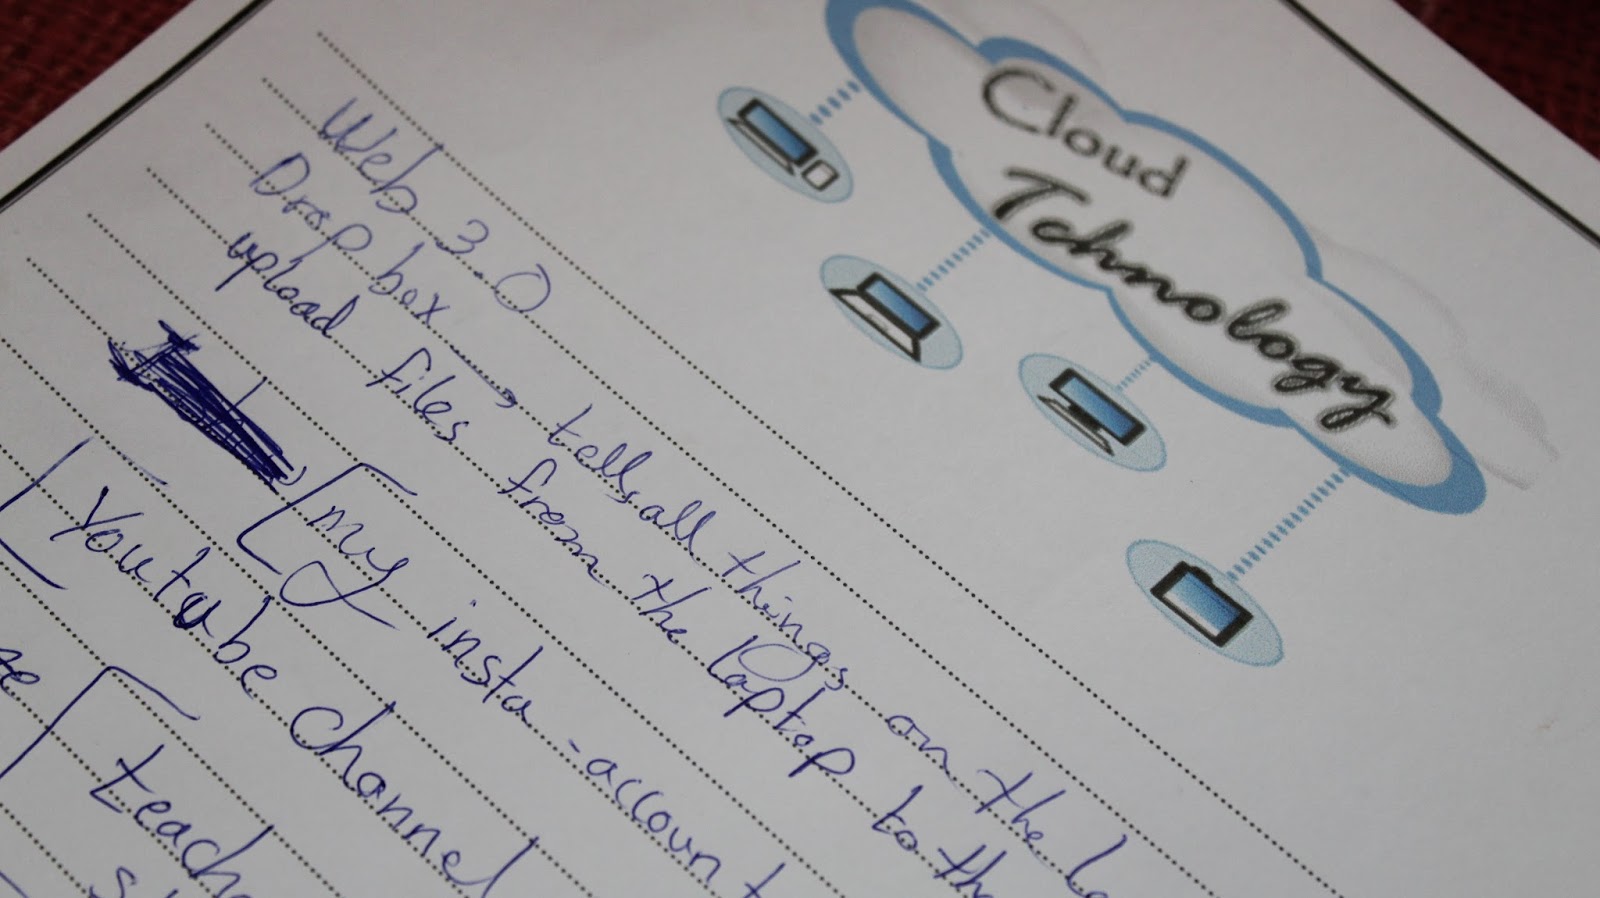 Cloud
Tchnology
Web 3.0
Drop box → tells all things on the
upload files from the laptop to the
my insta-account
Youtube channel